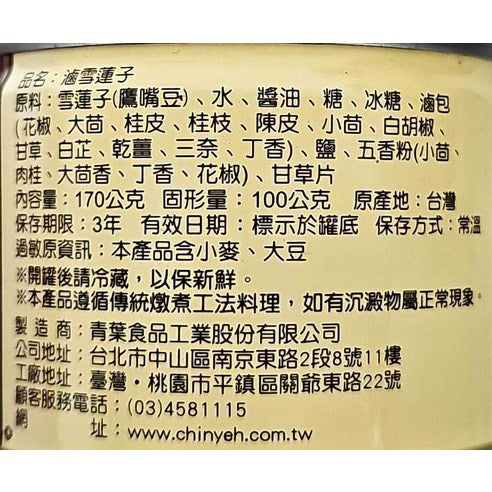 品名：滷雪蓮子
原料：雪蓮子(鷹嘴豆)、水、醬油、糖、冰糖、滷包
(花椒、大茴、桂皮、桂枝、陳皮、小茴、白胡椒、
甘草、白芷、乾薑、三奈、丁香)、鹽、五香粉(小茴、
肉桂、大茴香、丁香、花椒)、甘草片
內容量：170公克 固形量：100公克 原產地：台灣
保存期限：3年 有效日期：標示於罐底 保存方式：常溫
過敏原資訊：本產品含小麥、大豆
※開罐後請冷藏，以保新鮮。
※本產品遵循傳統燉煮工法料理，如有沉澱物屬正常現象。
製造商：青葉食品工業股份有限公司
公司地址：台北市中山區南京東路2段8號11樓
工廠地址：臺灣・桃園市平鎮區關爺東路22號
顧客服務電話：(03)4581115
網址：www.chinyeh.com.tw